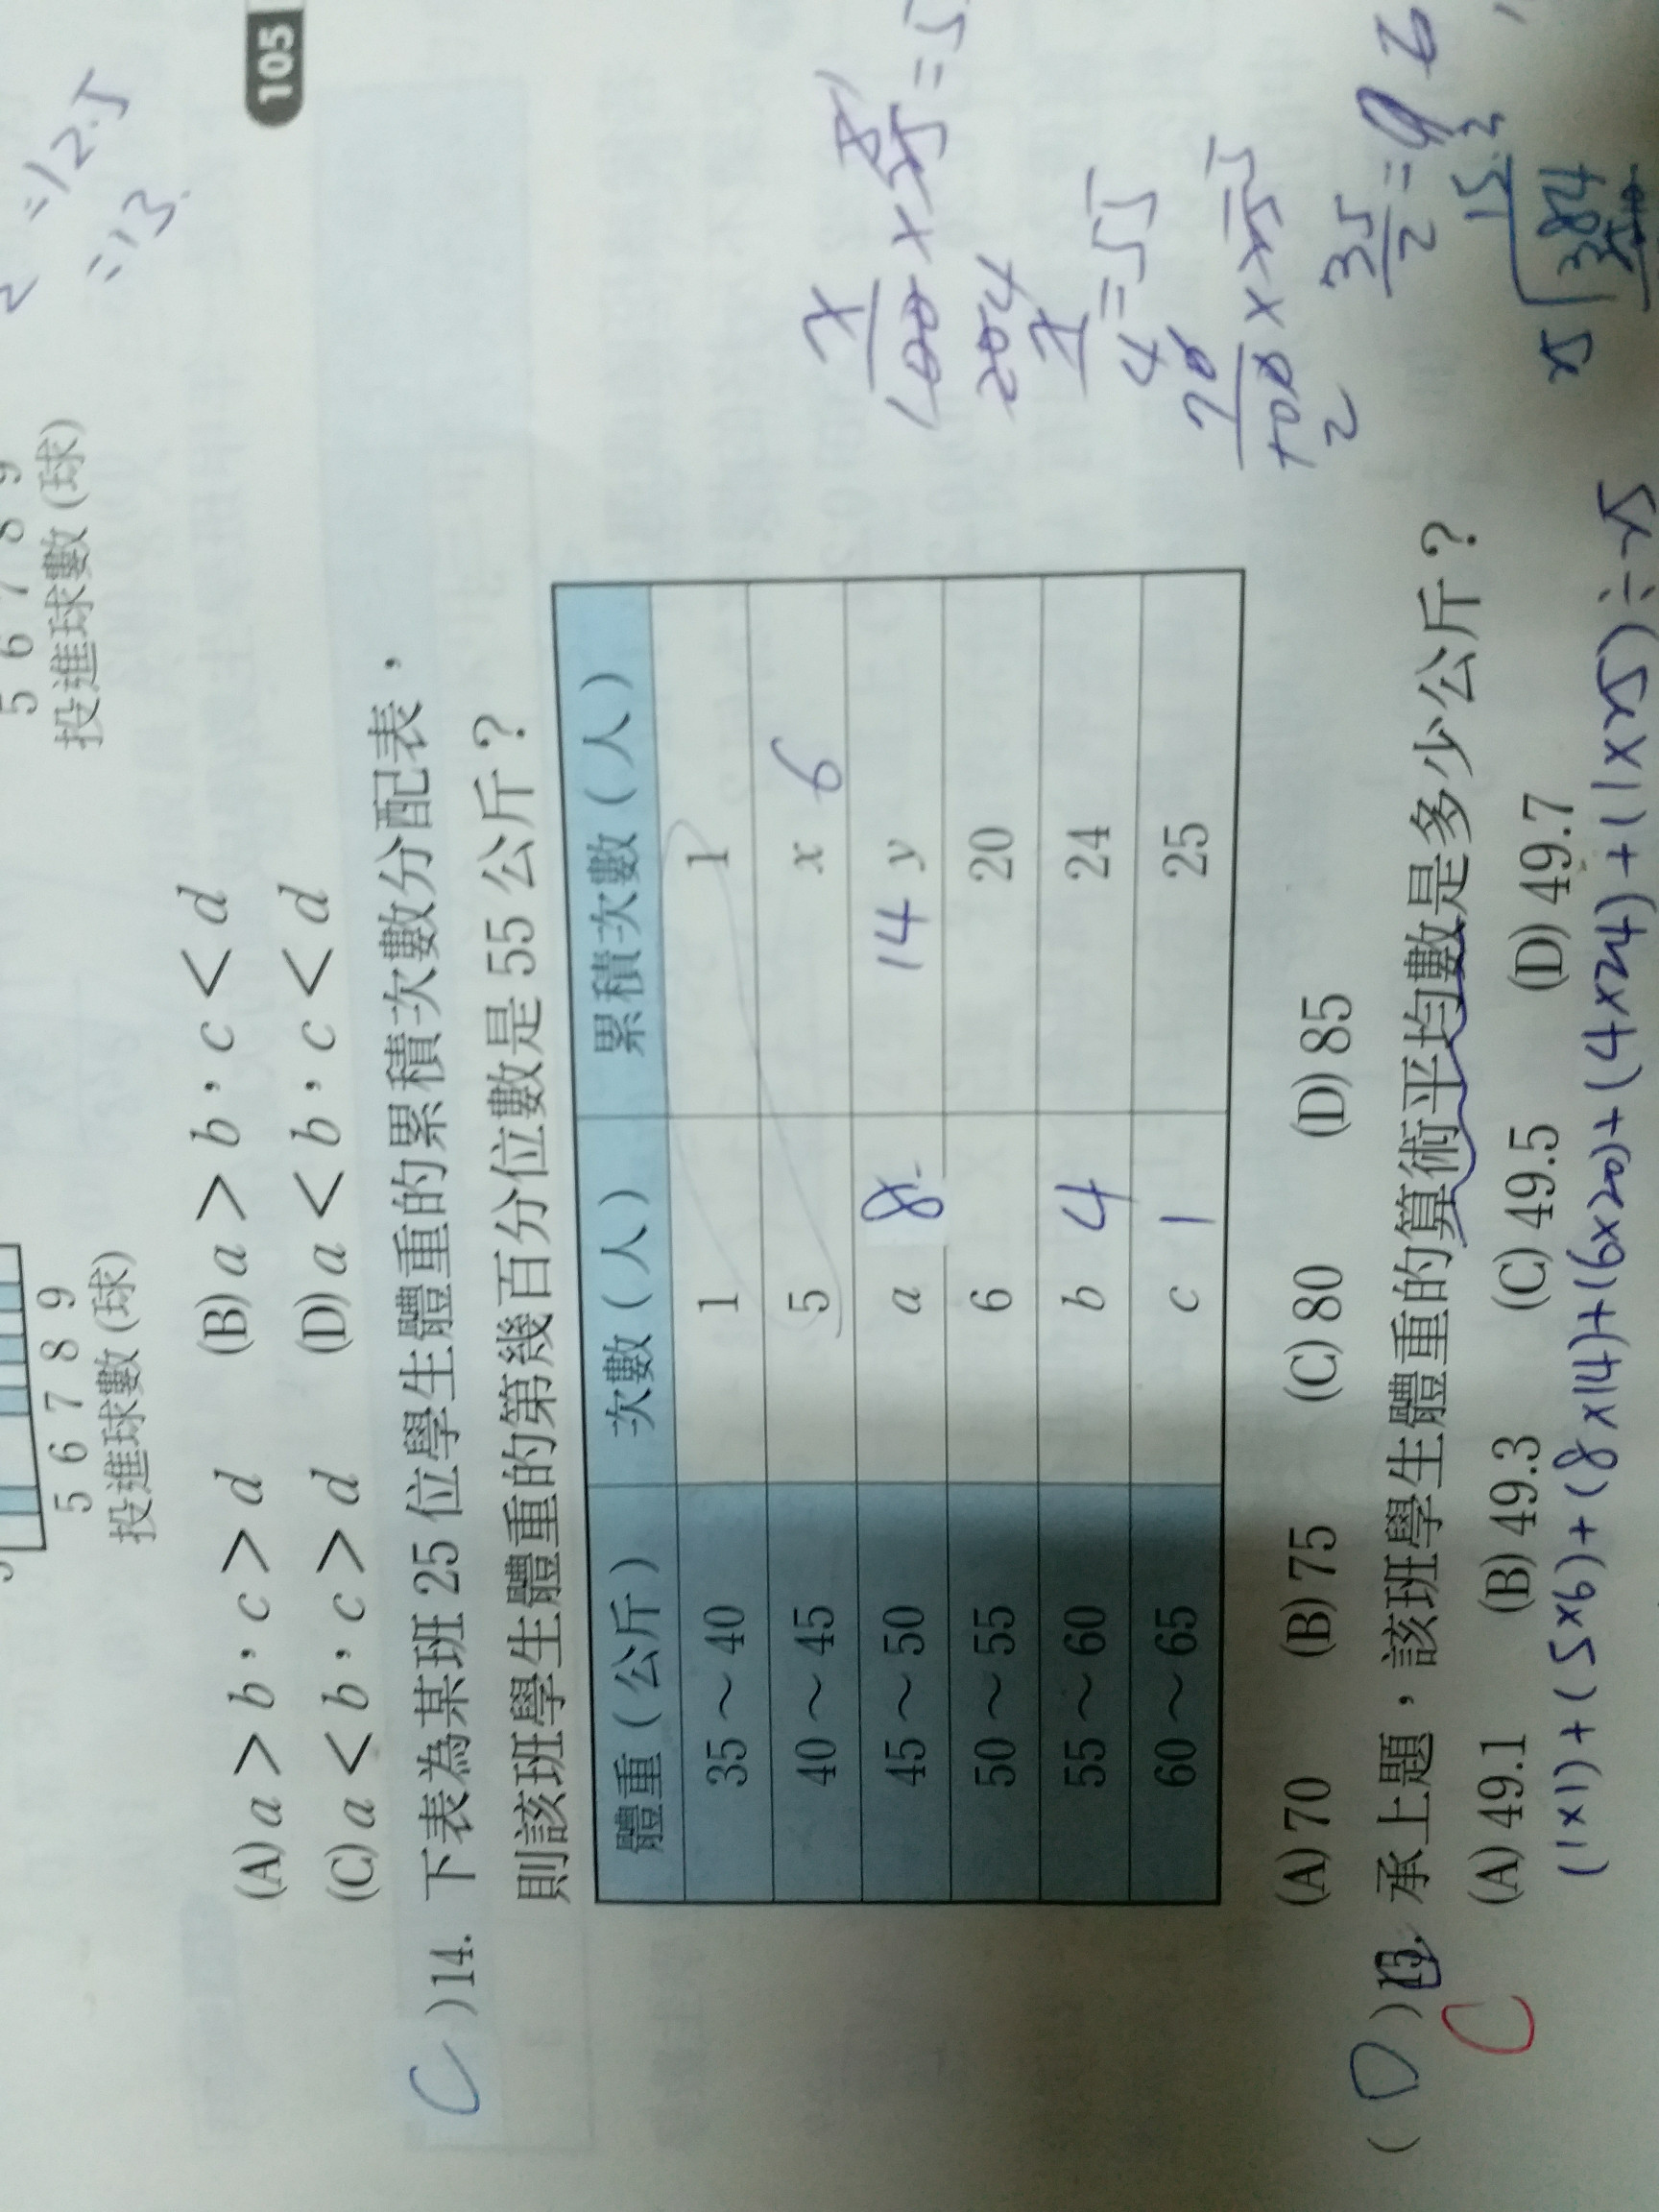 105
=12.5
=13.
5 6 7 8 9
投進球數(球)
5 6 7 8 9
投進球數(球)
(A) a > b，c > d (B) a > b，c < d
(C) a < b，c > d (D) a < b，c < d
( C )14. 下表為某班 25 位學生體重的累積次數分配表，
則該班學生體重的第幾百分位數是 55 公斤？
體重(公斤) 次數(人) 累積次數(人)
35～40 1 1
40～45 5 x 6
45～50 a 8 14 y
50～55 6 20
55～60 b 4 24
60～65 c 1 25
(A) 70 (B) 75 (C) 80 (D) 85
( D )15. 承上題，該班學生體重的算術平均數是多少公斤？
C
(A) 49.1 (B) 49.3 (C) 49.5 (D) 49.7
(1×1)+(5×6)+(8×14)+(6×20)+(4×24)+(1×25)÷25
35/2=
384